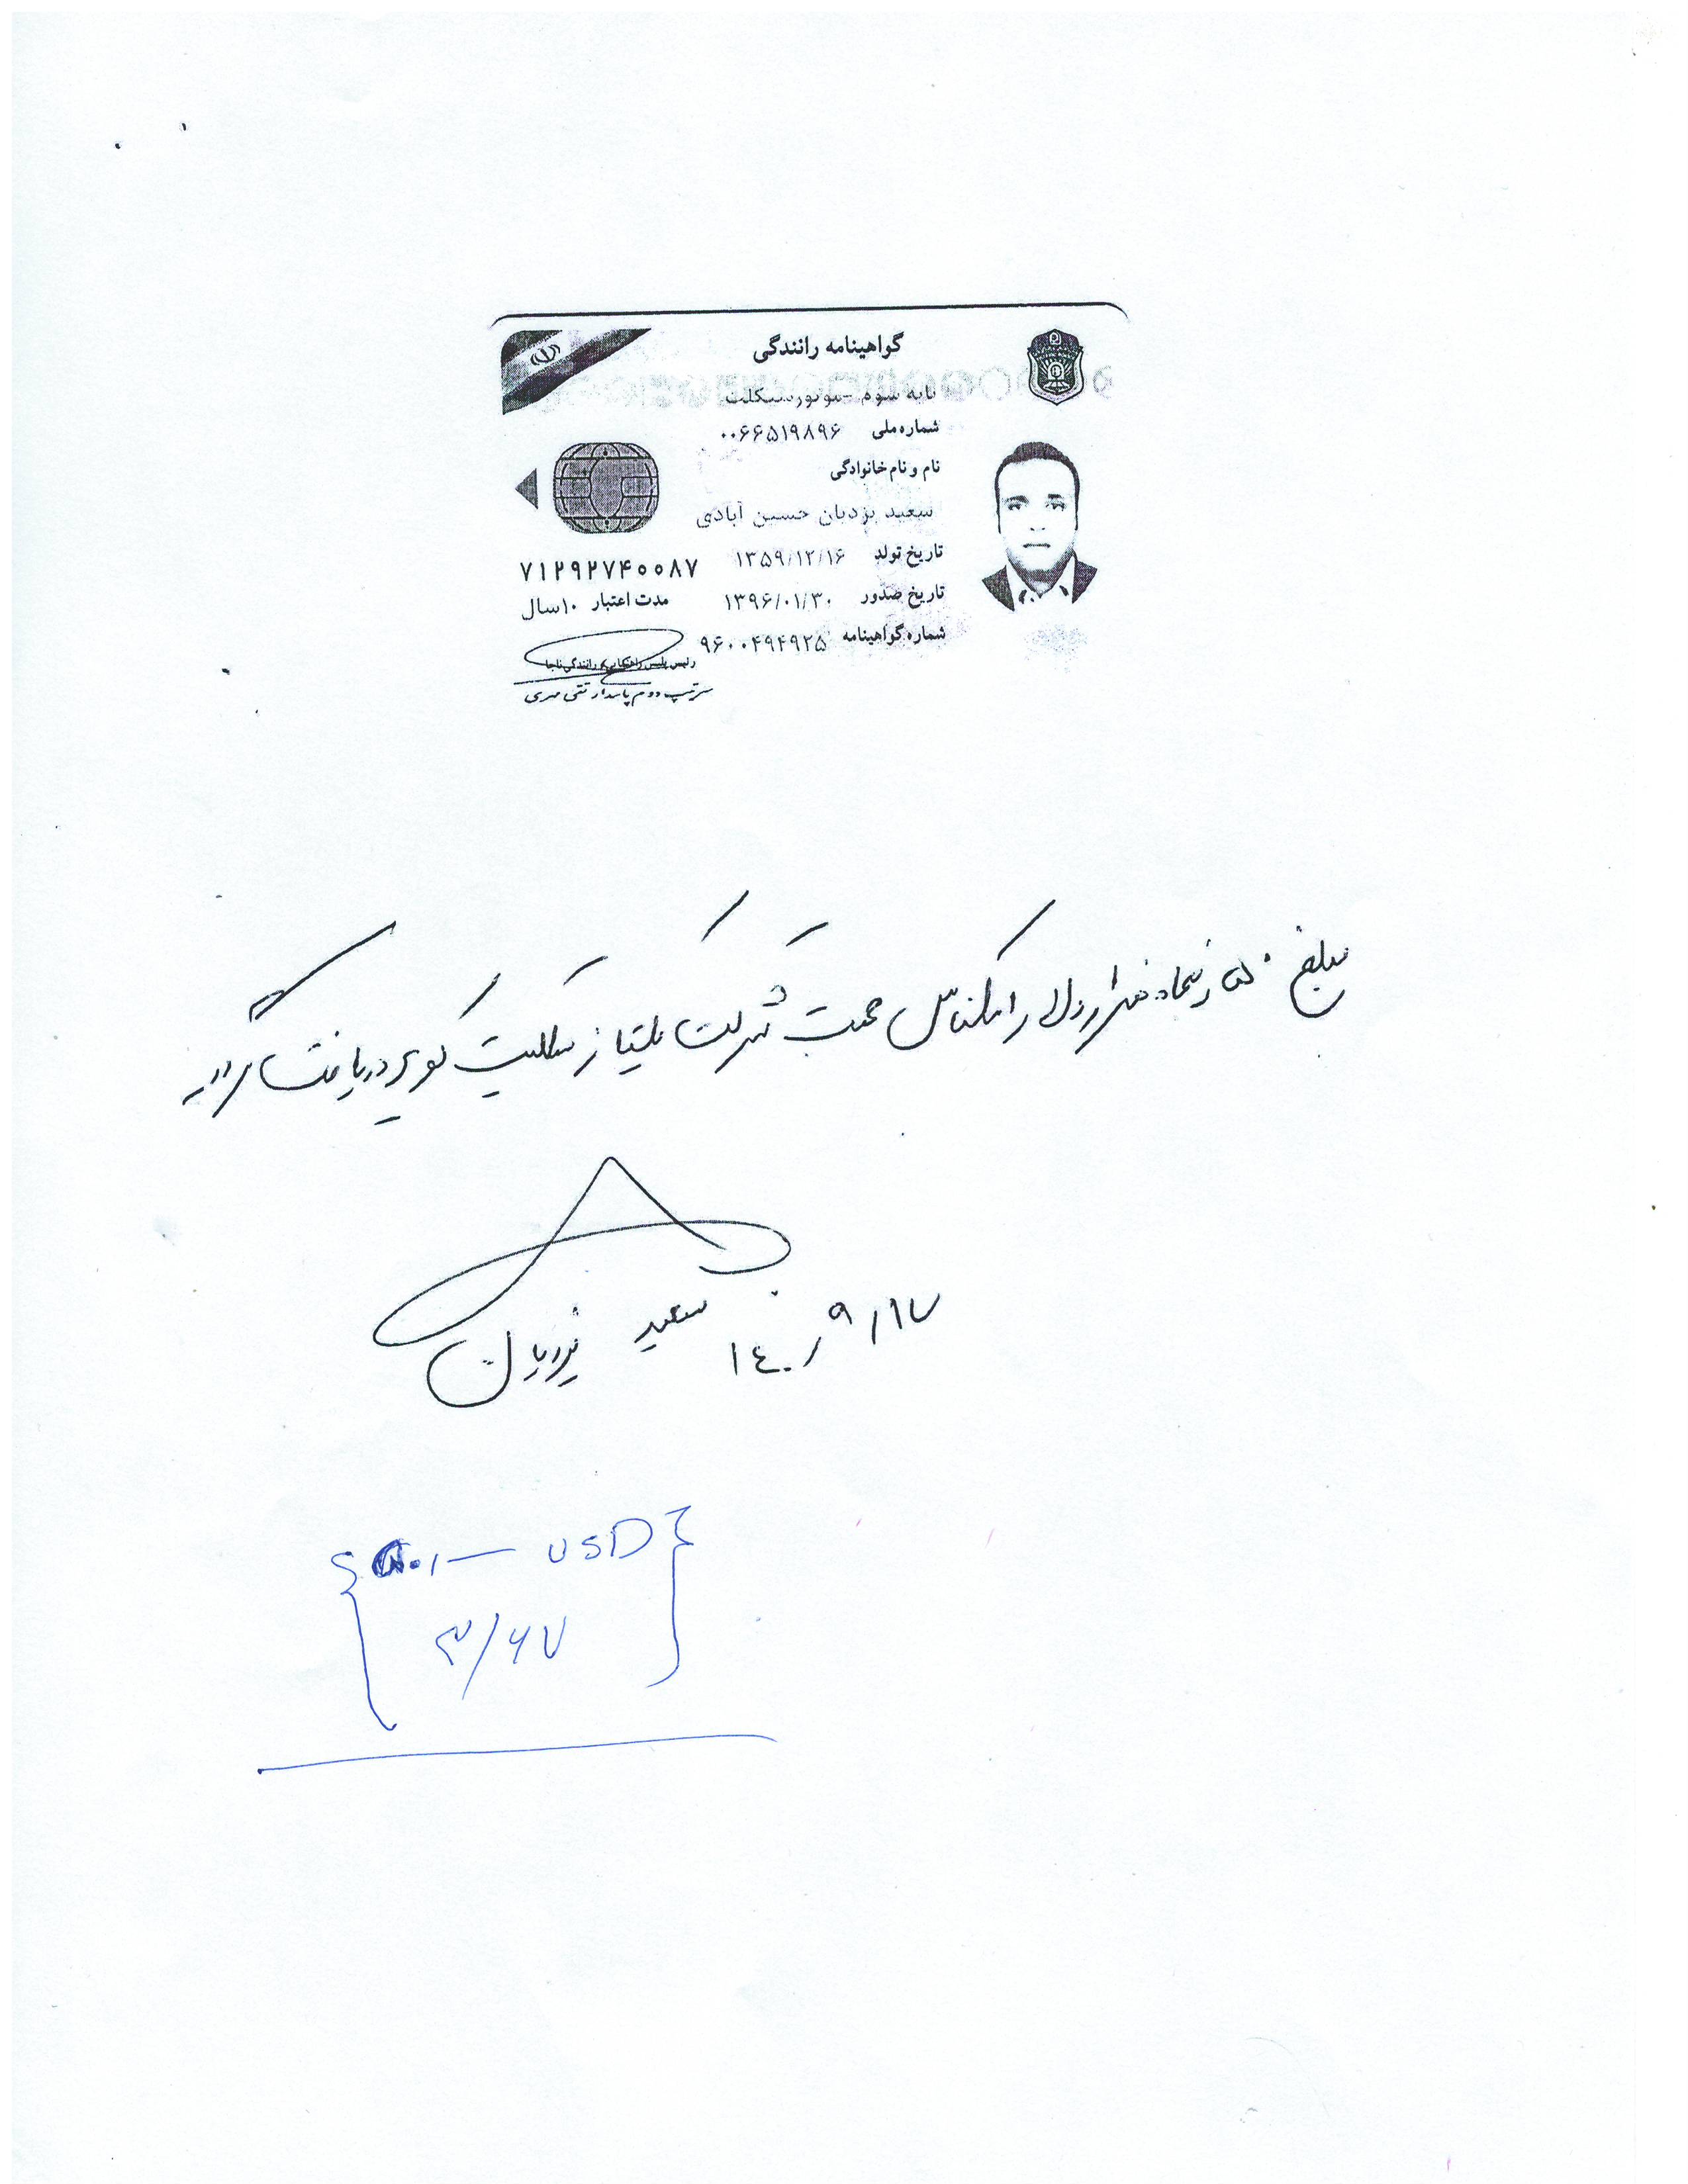 گواهینامه رانندگی
پایه سوم -موتورسیکلت
شماره ملی ۰۰۶۶۵۱۹۸۹۶
نام و نام خانوادگی
سعید یزدیان حسین آبادی
تاریخ تولد ۱۳۵۹/۱۲/۱۶
۷۱۲۹۲۷۴۰۰۸۷
تاریخ صدور ۱۳۹۶/۰۱/۳۰
مدت اعتبار ۱۰سال
شماره گواهینامه ۹۶۰۰۴۹۴۹۲۵
رئیس پلیس راهنمایی و رانندگی ناجا
سرتیپ دوم پاسدار تقی مهری
مبلغ ۵۰ پنجاه هزار دلار اسکناس جهت شرکت از دریافت گردید
سعید یزدیان ۱۴۰۰/۹/۱۷
USD
۳/۶۷